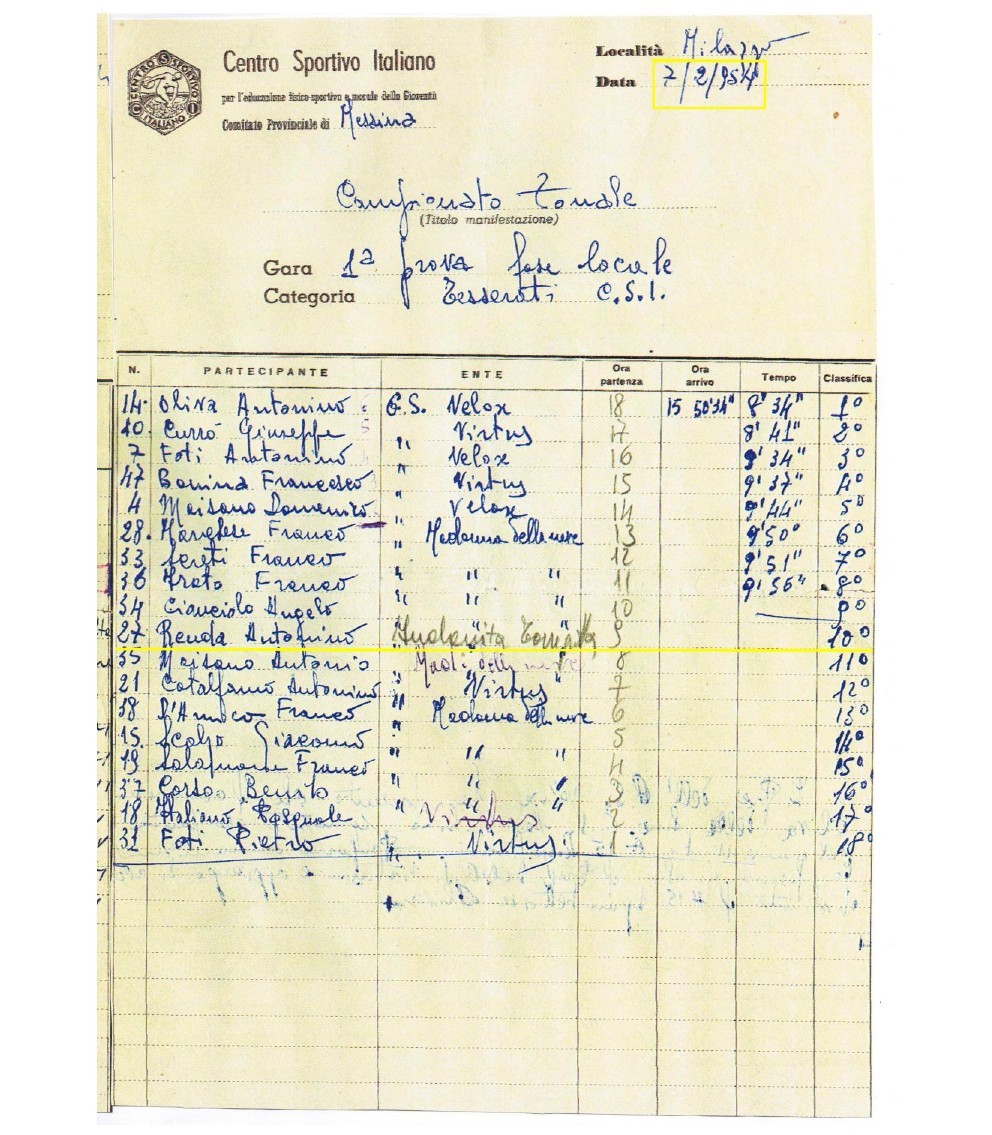 Centro Sportivo Italiano
per l'educazione fisico-sportiva e morale della Gioventù
Comitato Provinciale di Messina
CENTRO SPORTIVO ITALIANO
Località Milazzo
Data 7/2/954
Campionato Zonale
(Titolo manifestazione)
Gara 1ª prova fase locale
Categoria Tesserati C.S.I.
N. PARTECIPANTE ENTE Ora partenza Ora arrivo Tempo Classifica
14. Oliva Antonino G.S. Velox 18 15 50'34" 8' 34" 1º
10. Currò Giuseppe " Virtus 17 8' 41" 2º
7 Foti Antonino " Velox 16 9' 34" 3º
47 Bonina Francesco " Virtus 15 9' 37" 4º
4 Maisano Domenico " Velox 14 9' 44" 5º
28. Franco " Madonna delle neve 13 9' 50" 6º
33 Franco " " " 12 9' 51" 7º
36 Franco " " " 11 9' 56" 8º
34 Cianciolo Angelo " " " 10 9º
27 Renda Antonino 9 10º
35 Maisano Antonio 8 11º
21 Catalfamo Antonino " Virtus 7 12º
38 D'Amico Franco " Madonna delle neve 6 13º
15. Scolpo Giacomo " " " 5 14º
19 Franco " " " 4 15º
37 Corso Benito " " " 3 16º
18 Italiano Pasquale " Virtus 2 17º
32 Foti Pietro " Virtus 1 18º